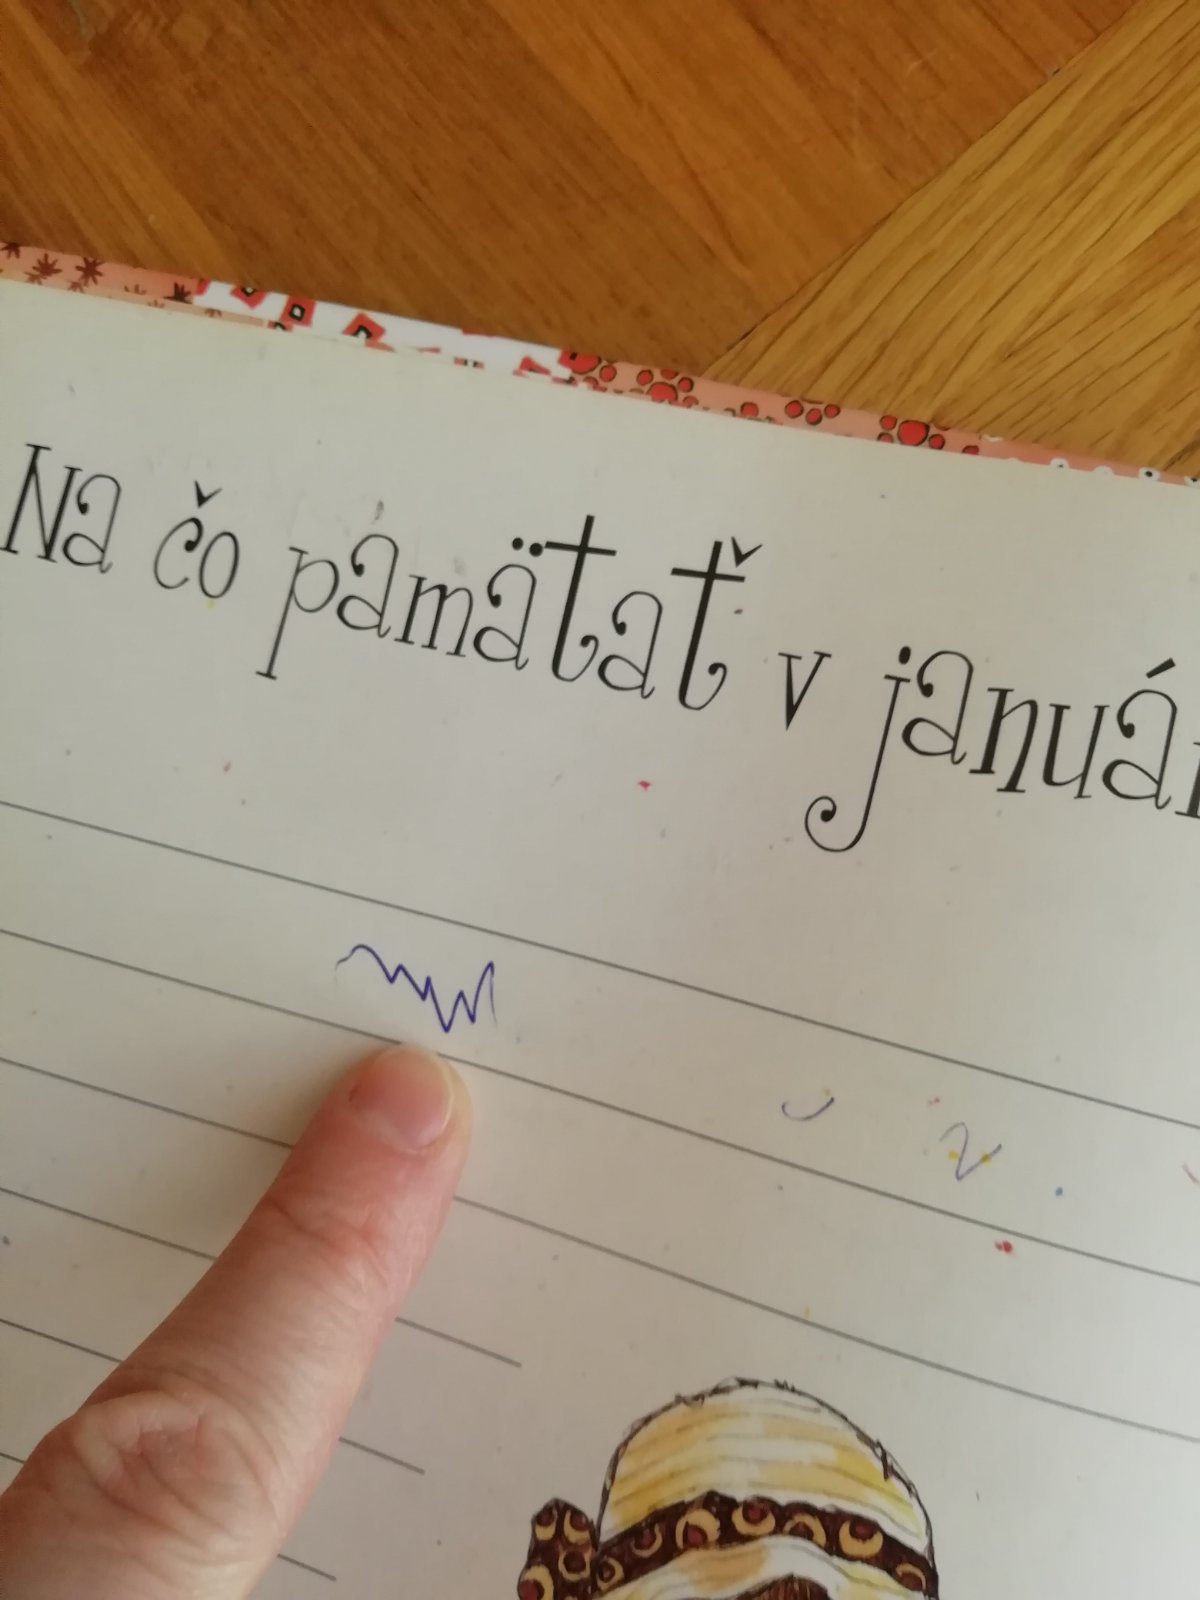 Na čo pamätať v januá